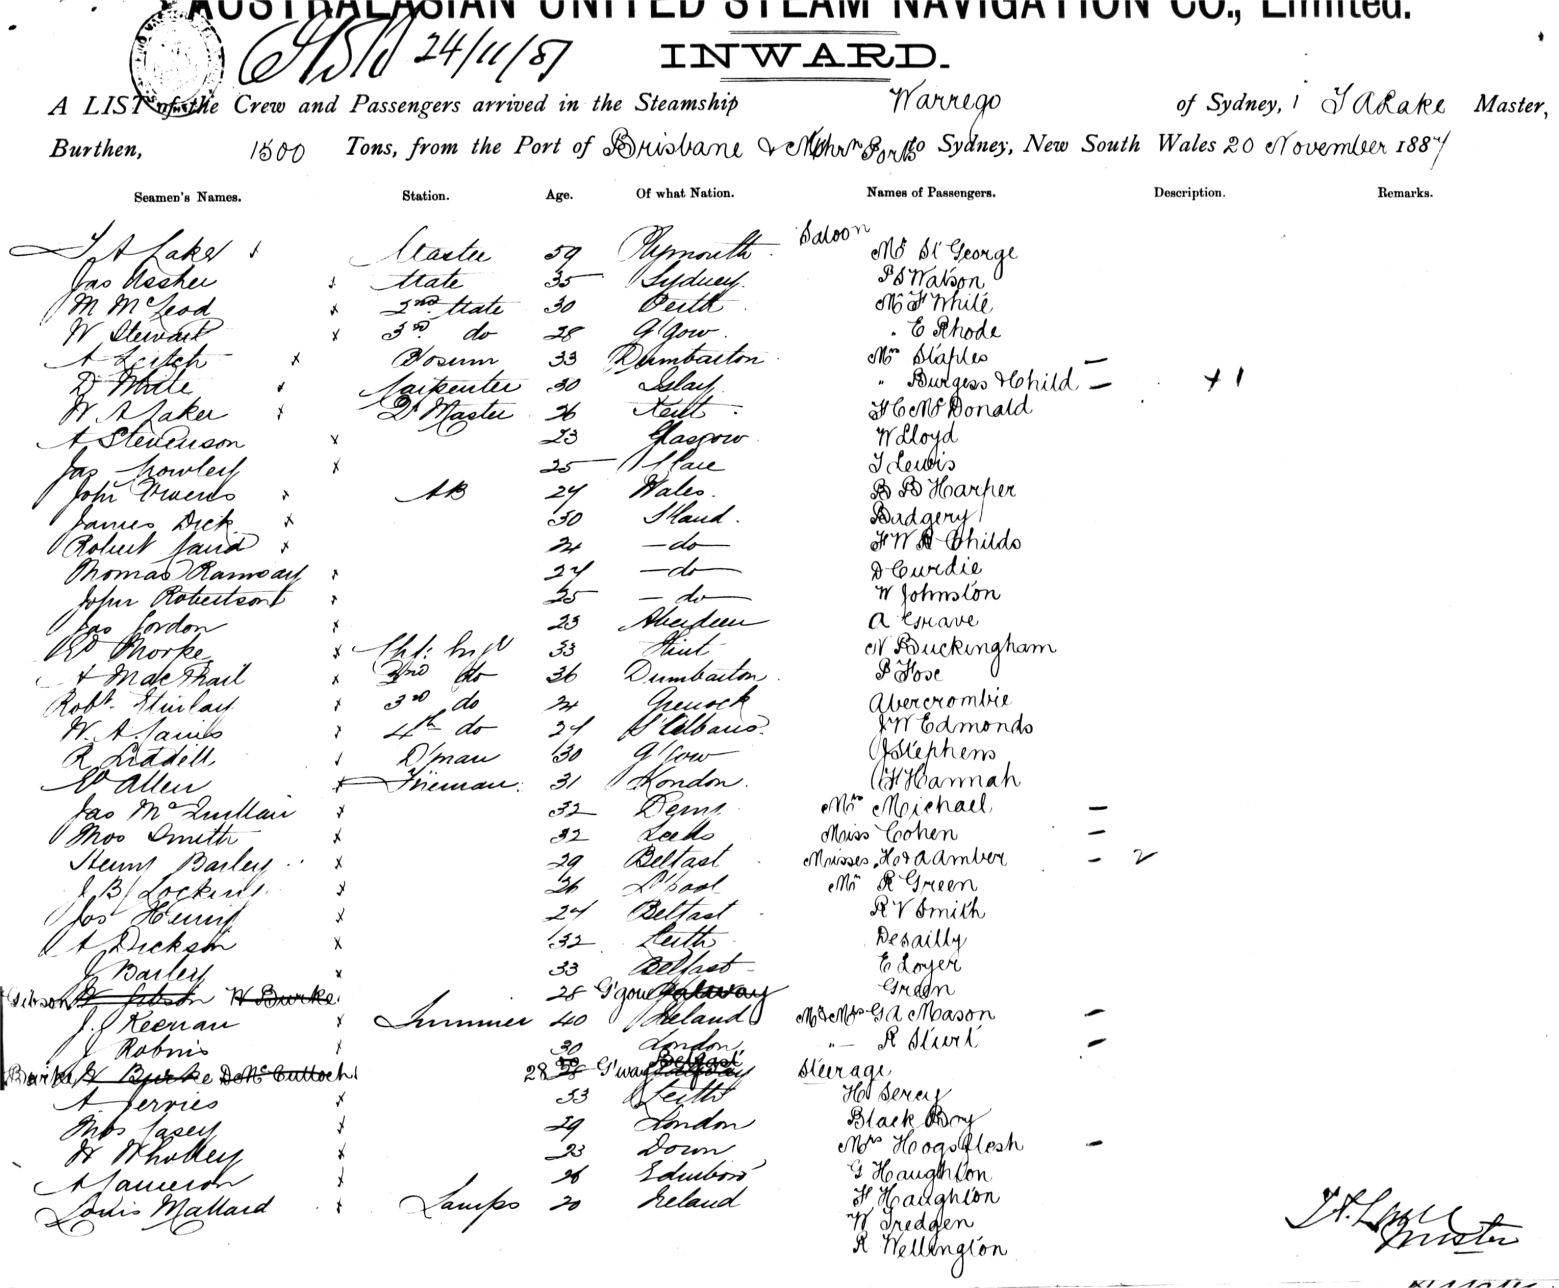 AUSTRALASIAN UNITED STEAM NAVIGATION CO., Limited.
24/11/87
INWARD.
A LIST of the Crew and Passengers arrived in the Steamship Warrego of Sydney, T A Lake Master,
Burthen, 1500 Tons, from the Port of Brisbane & Nthrn Ports to Sydney, New South Wales 20 November 1887
Seamen's Names. Station. Age. Of what Nation. Names of Passengers. Description. Remarks.
Saloon
T A Lake Master 59 Plymouth Mr St George
Jas Ussher Mate 35 Sydney P S Watson
M McLeod 2nd Mate 30 Perth Mr F White
W Stewart 3rd do 28 G'gow " E Rhode
A Leitch Bosun 33 Dumbarton Mrs Staples —
D White Carpenter 30 Islay " Burgess & Child — + 1
W A Laker Qr Master 26 Kent H C McDonald
A Stevenson 23 Glasgow W Lloyd
Jas Crowley 25 Clare T Lewis
John Owens AB 27 Wales B B Harper
James Dick 30 S'land Badgery
Robert Laird 24 — do — F W R Childs
Thomas Ramsay 27 — do — D Curdie
John Robertson 25 — do — W Johnston
Jas Gordon 23 Aberdeen A Grave
Ed Thorpe Chf: Engr 33 Flint N Buckingham
A MacPhail 2nd do 36 Dumbarton P Fose
Robt. Finlay 3rd do 24 Greenock Abercrombie
W. A. 4th do 27 St Albans J W Edmonds
R Liddell D'man 30 G'gow J Stephens
Ed Allen Fireman 31 London F Hannah
Jas McQuillan 32 Derry Mrs Michael —
Thos Smith 32 Leeds Miss Cohen —
Henry Barley 29 Belfast Misses H & A Amber — 2
J B Lockins 26 L'pool Mr R Green
Jos Henry 24 Belfast R V Smith
A Dickson 32 Leith Desailly
J Barley 33 Belfast E Loyer
Gibson W Gibson W Burke 28 G'gow Galway Green
J. Keenan Trimmer 40 Ireland Mr & Mrs G A Mason —
J Robins 30 London " — R Sturt —
Burke W Burke D McCulloch 28 G'way Belfast Steerage
A Jervies 33 Leith H Sercy
Thos Casey 29 London Black Boy
W Wholley 23 Down Mrs Hogsflesh —
A Cameron 26 Edinboro' G Haughton
Louis Mallard Lamps 20 Ireland F Haughton
W Tredgen
R Wellington
T A Lake
Master